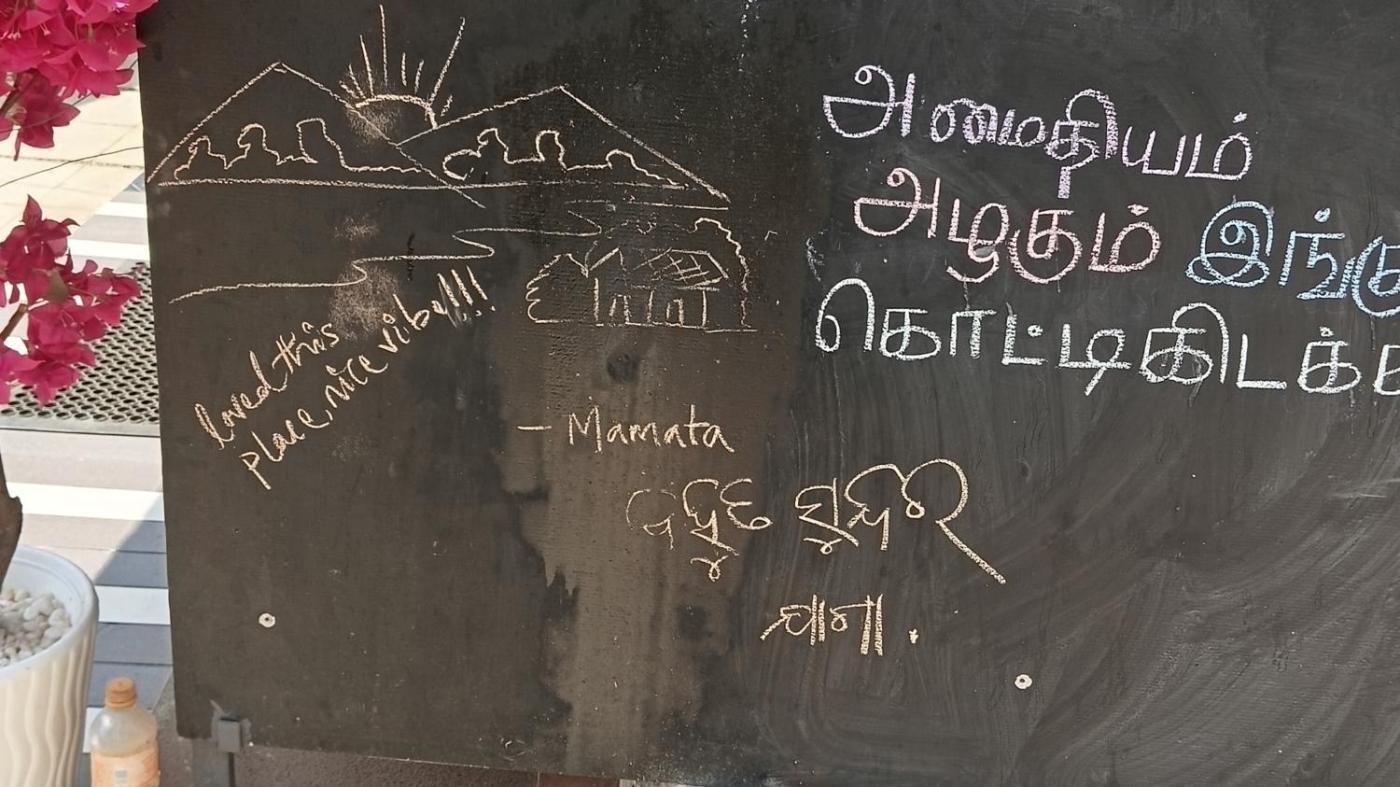 loved this
place, nice vibe!!!!
- Mamata
ବହୁତ ସୁନ୍ଦର
ଯାଗା .
அமைதியம்
அழகும் இங்கு
கொட்டிகிடக்க